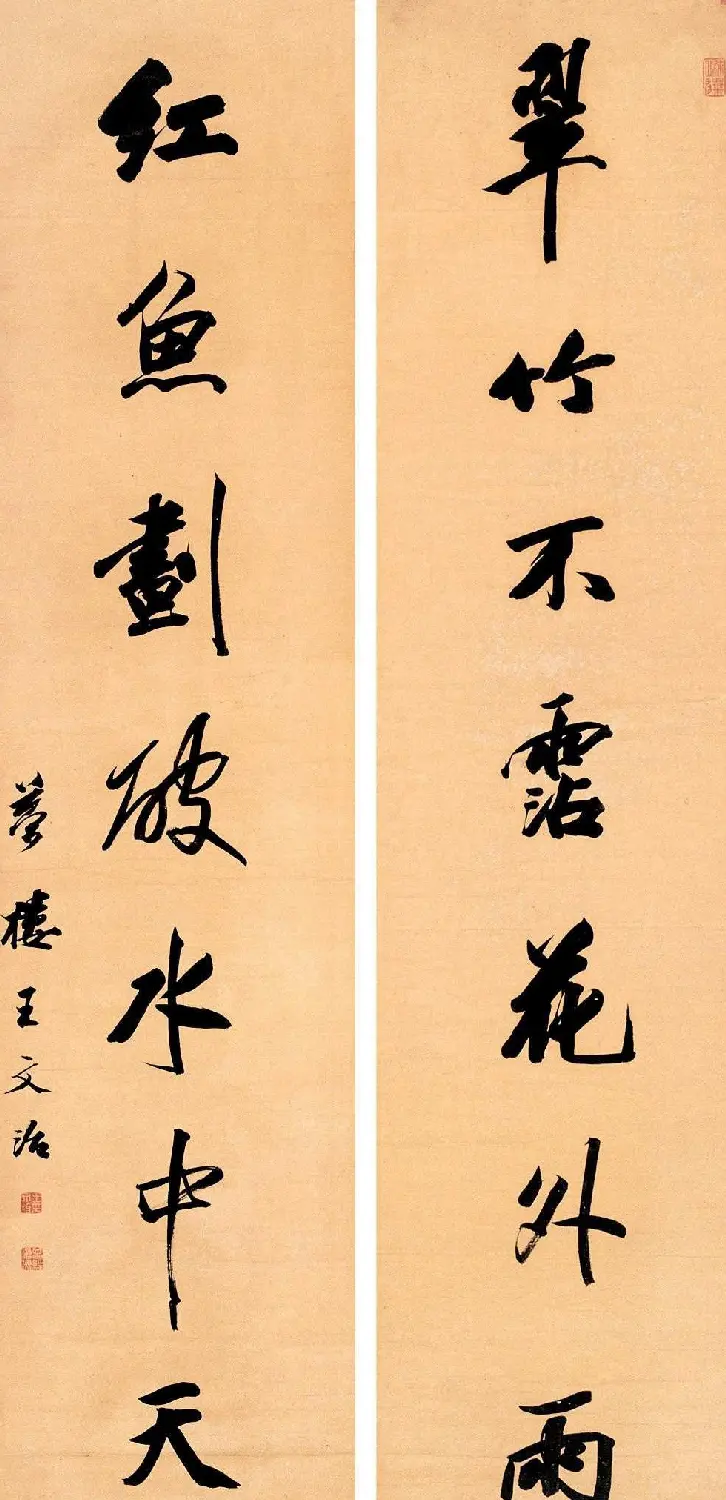 翠竹不霑花外雨
红魚劃破水中天
夢樓王文治